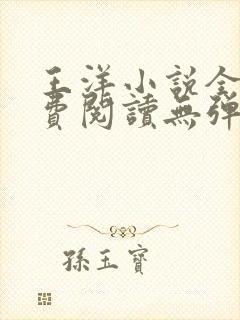 王洋小說全
費閱讀無彈
孫玉寶